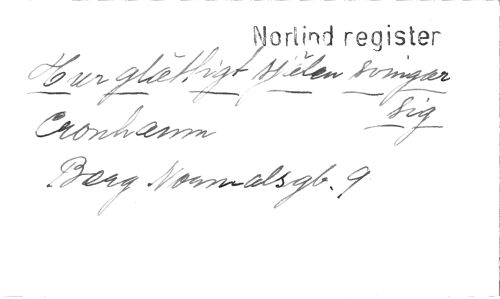 Norlind register
Hur glättigt själen svingar
sig
Cronhamn
Berg Normalsgb. 9